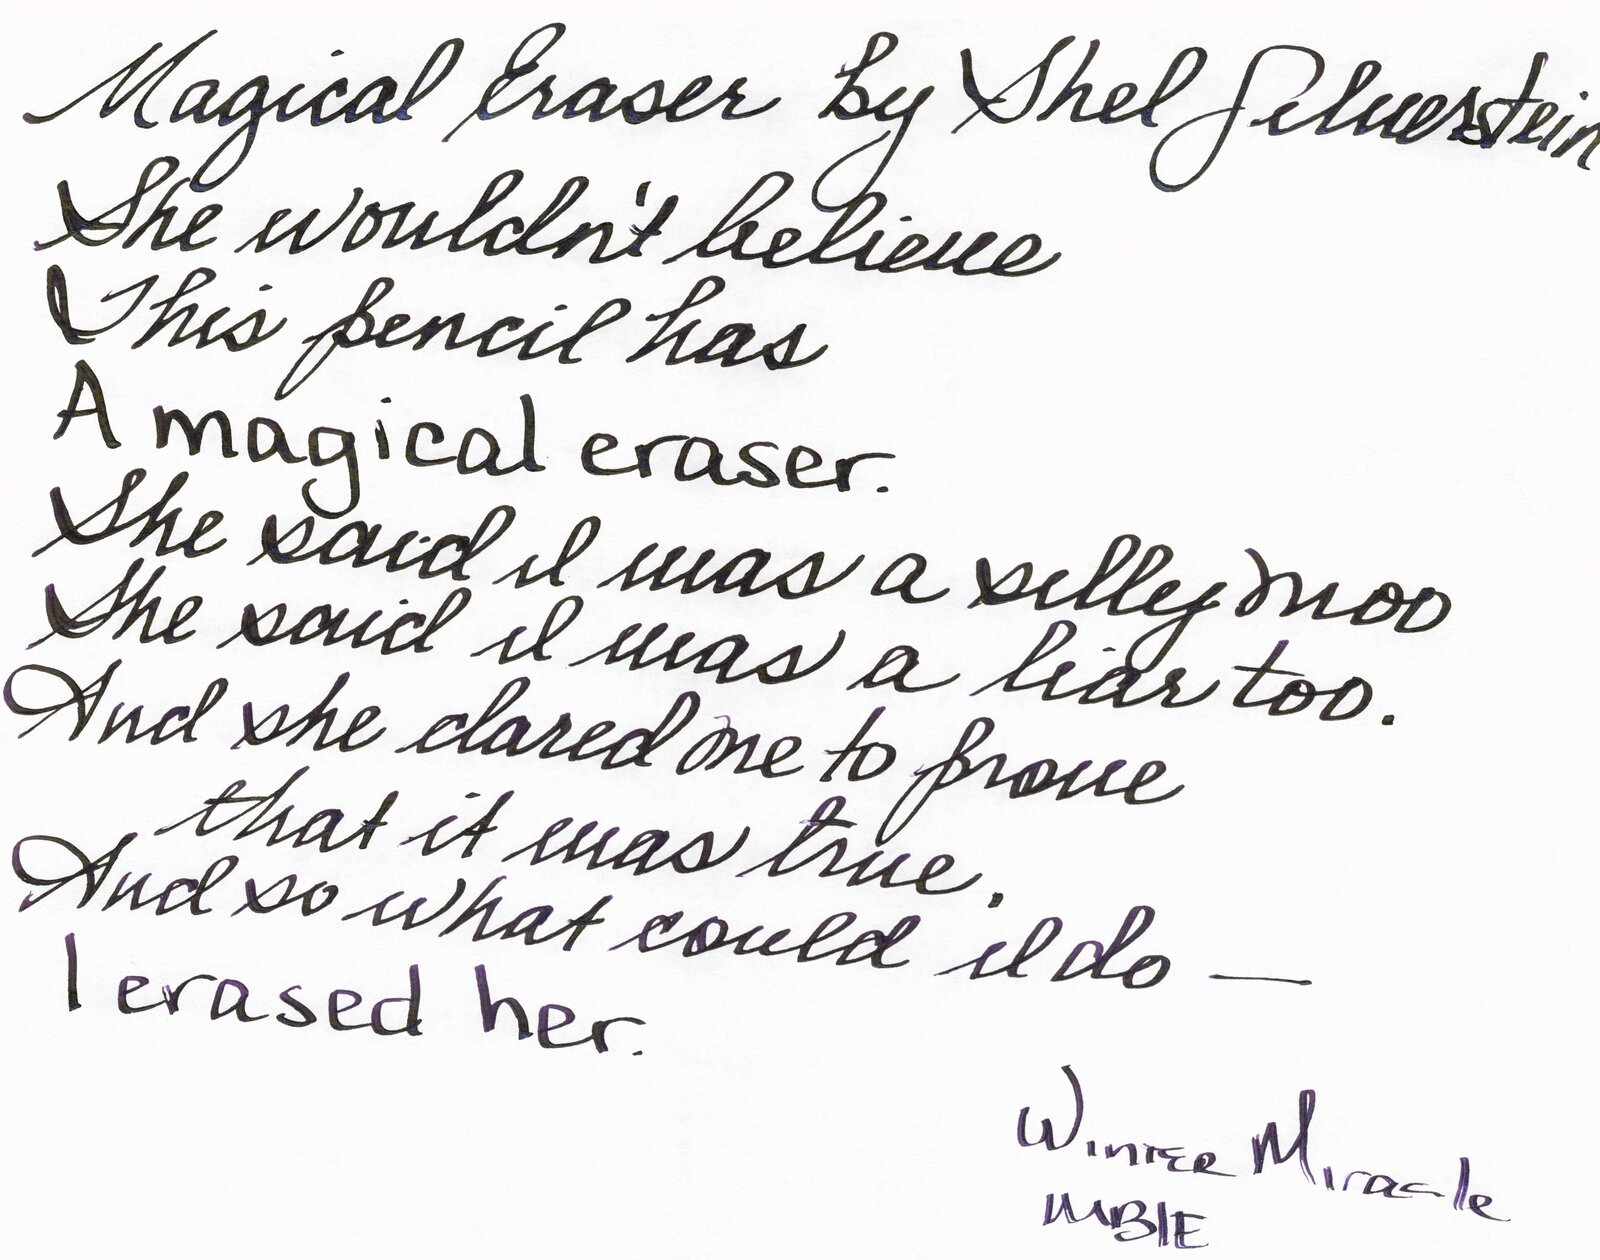 Magical Eraser by Shel Silverstein
She wouldn't believe
This pencil has
A magical eraser.
She said I was a silly moo
She said I was a liar too.
And she dared me to prove
that it was true.
And so what could I do —
I erased her.
Winter Miracle